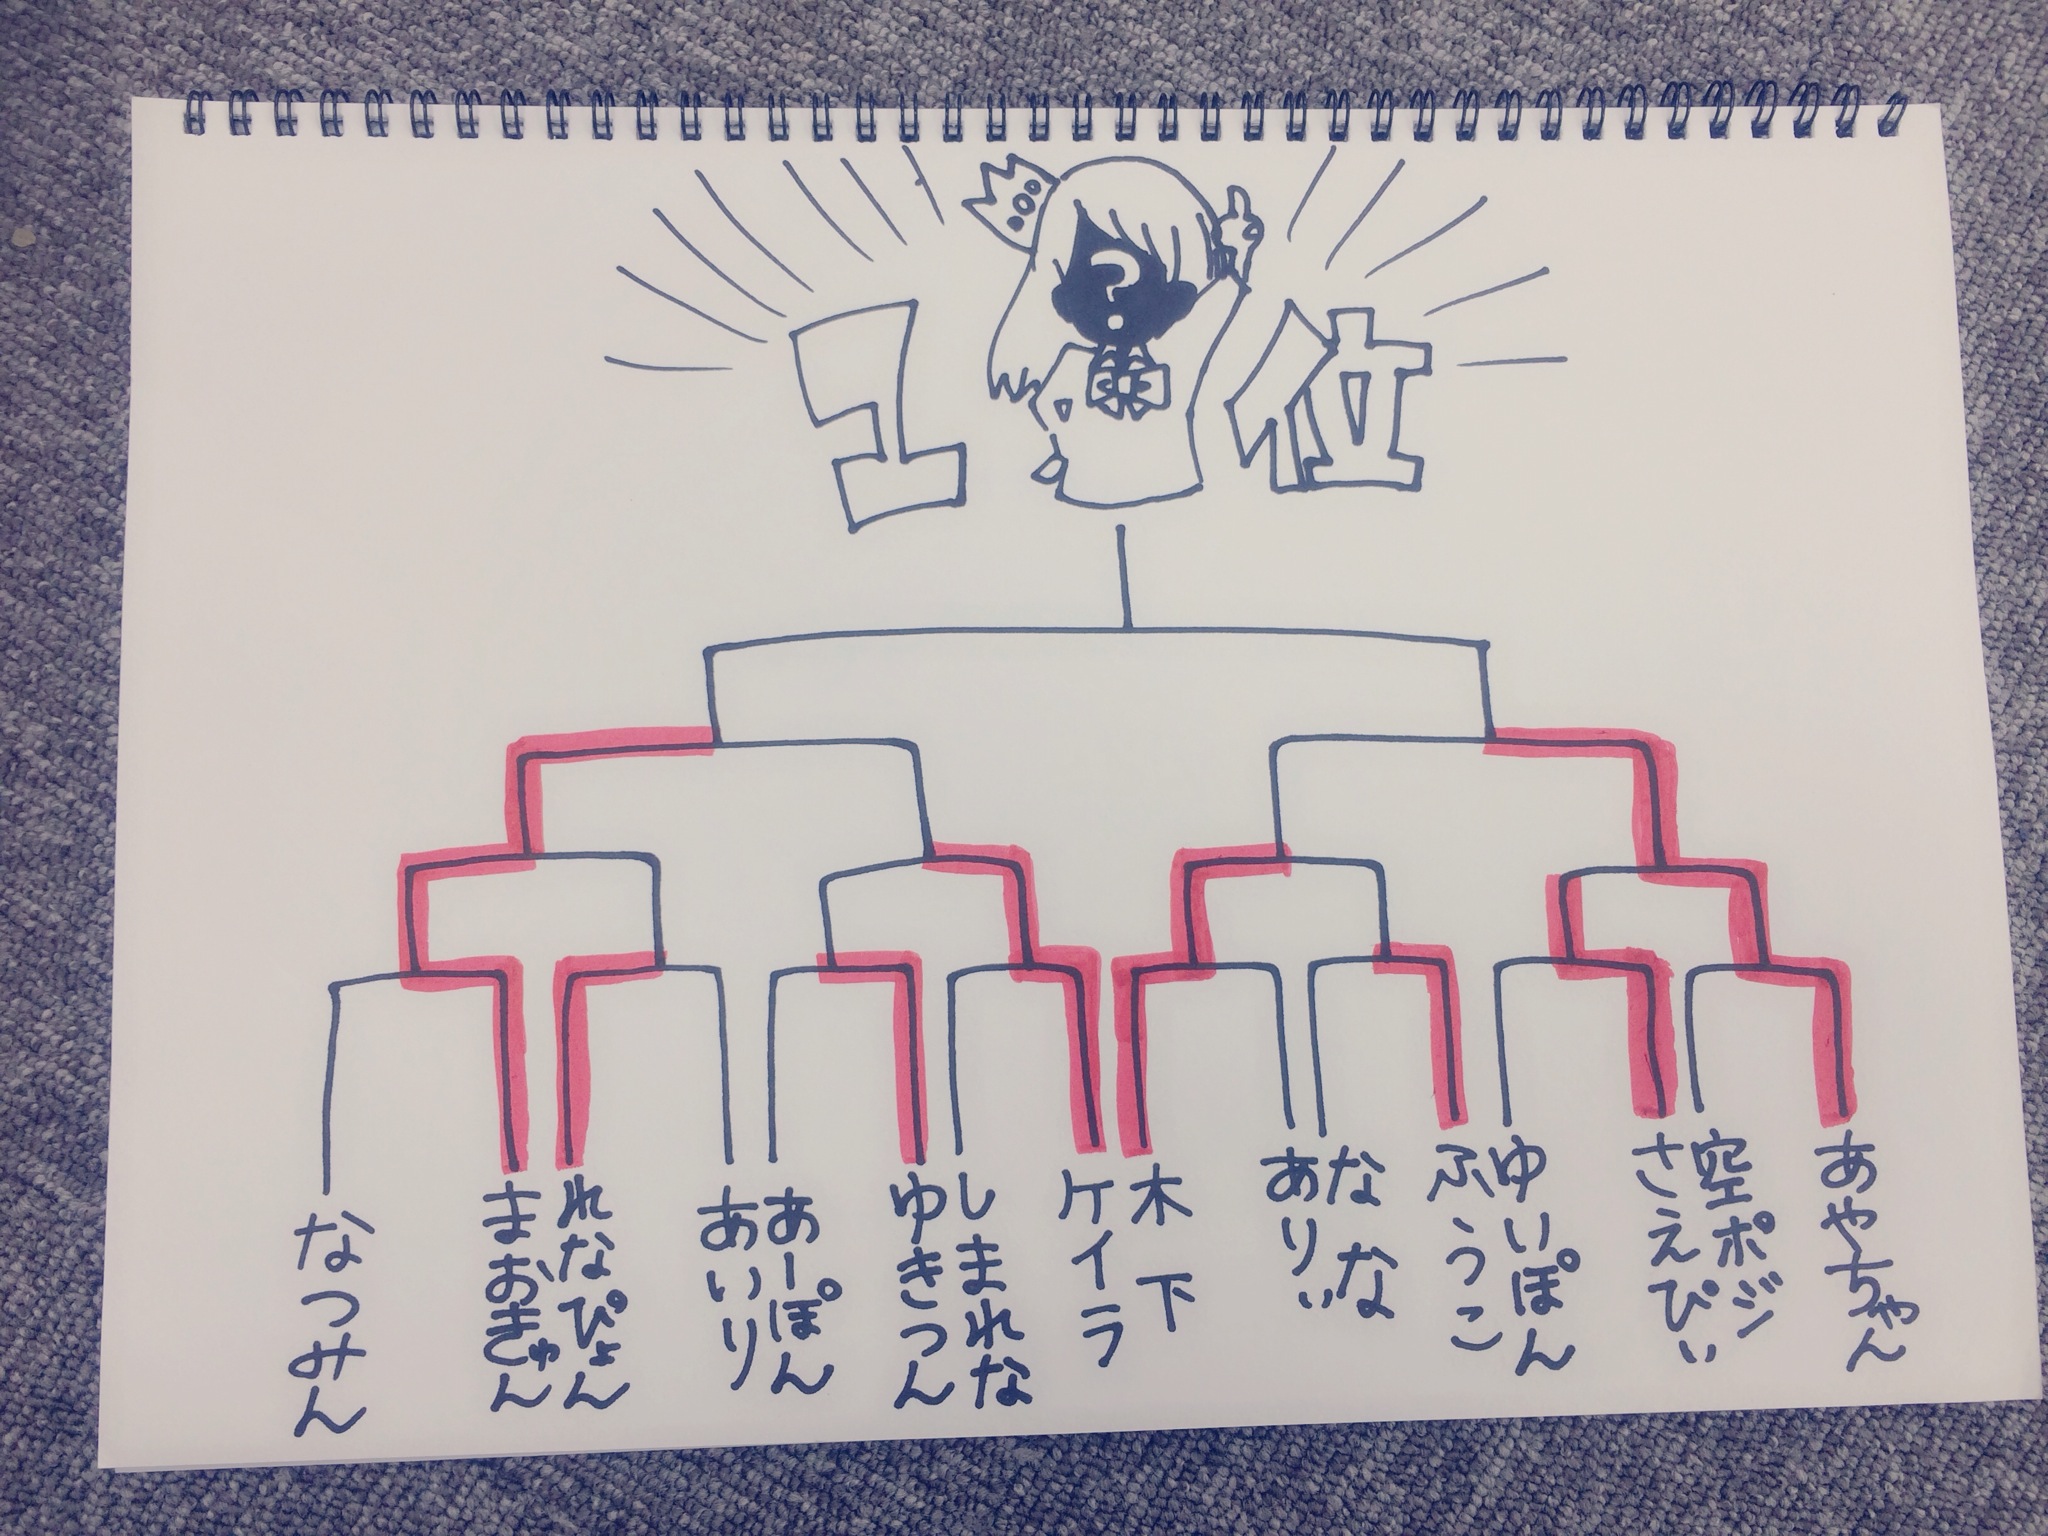 1位
?
なつみん
まおきゅん
れなぴょん
あいり
あーぽん
ゆきつん
しまれな
ケイラ
木下
ありぃ
なな
ふうこ
ゆいぽん
さえぴぃ
空ポジ
あやちゃん